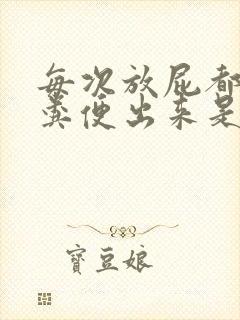 每次放屁都
粪便出来是
寶豆娘